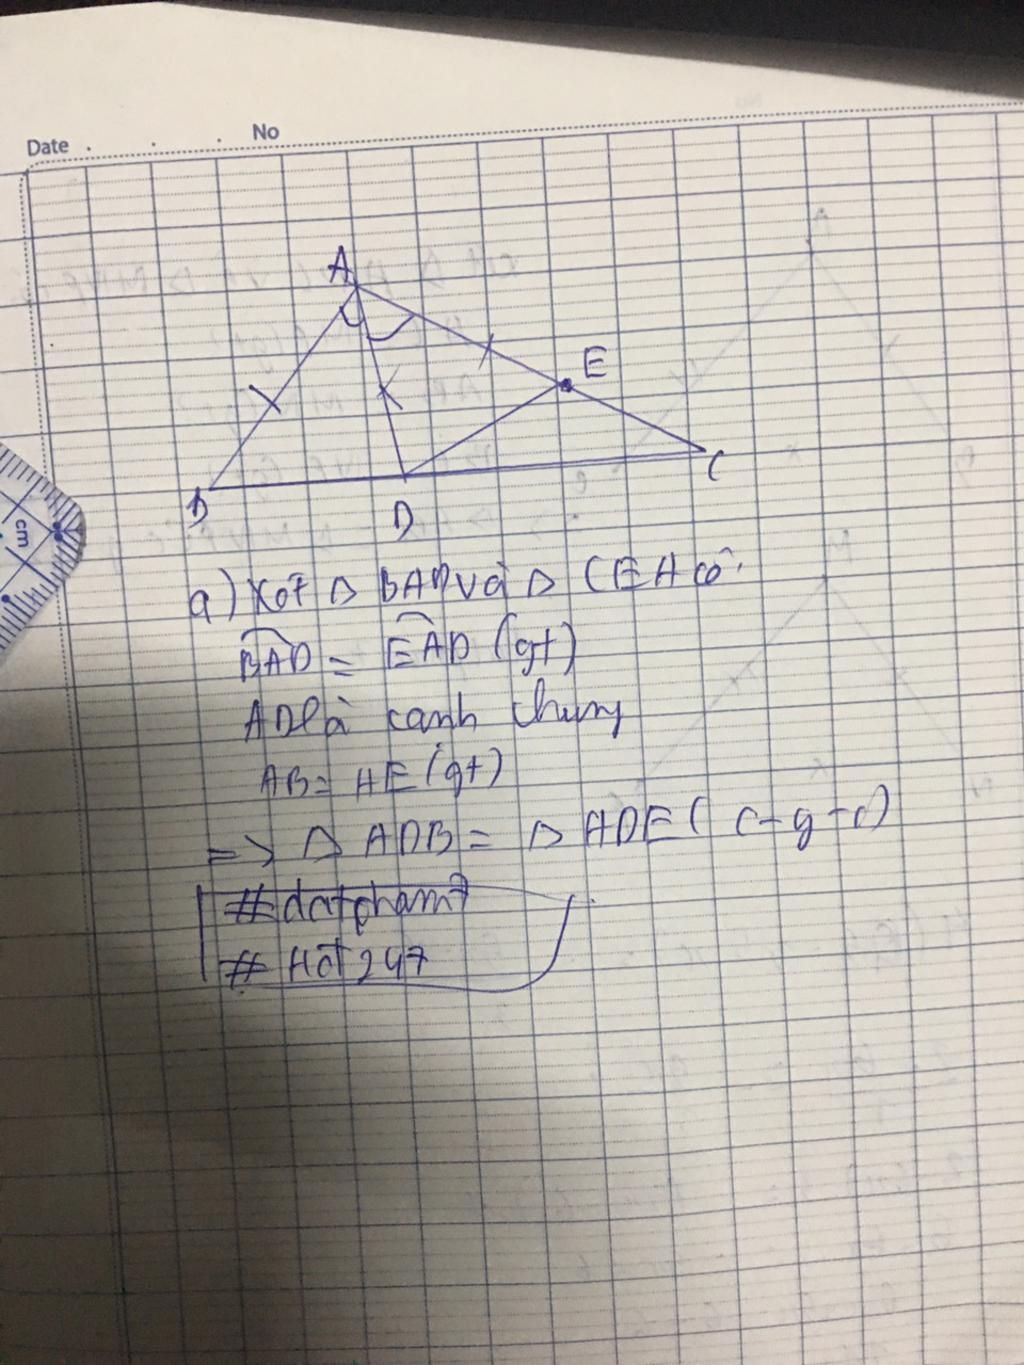 Date No
A
E
B
D
C
cm
a) Xét Δ BAD và Δ CEA có:
BAD = EAD (gt)
AD là cạnh chung
AB = AE (gt)
=> Δ ADB = Δ ADE ( c-g-c)
#datpham7
# Hot247